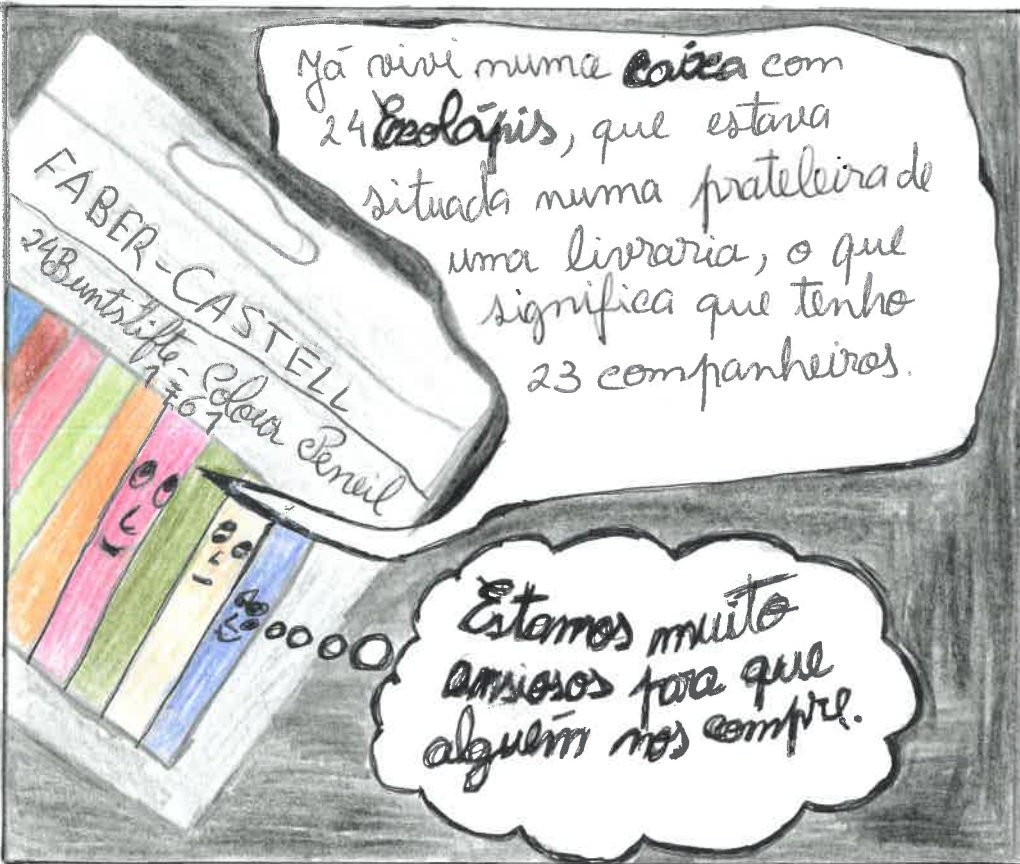 Já vivi numa caixa com
24 Ecolápis, que estava
situada numa prateleira de
uma livraria, o que
significa que tenho
23 companheiros.
FABER-CASTELL
24 Buntstifte-Colour Pencil
1761
Estamos muito
ansiosos para que
alguém nos compre.